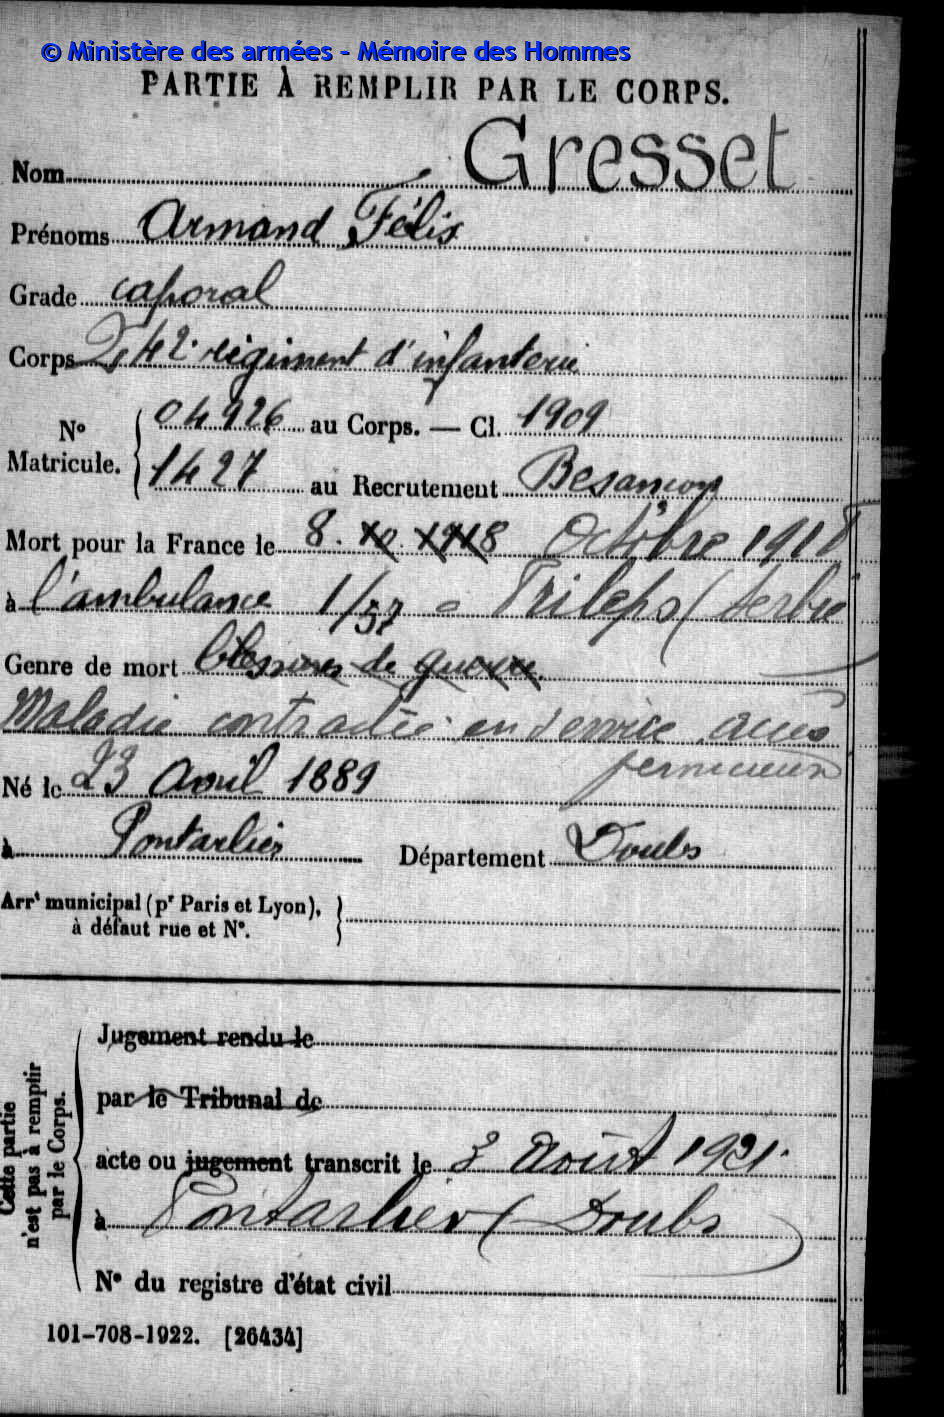 © Ministère des armées - Mémoire des Hommes
PARTIE À REMPLIR PAR LE CORPS.
Nom Gresset
Prénoms Armand Félix
Grade caporal
Corps 242e régiment d'infanterie
No Matricule. { 04926 au Corps. — Cl. 1909
1427 au Recrutement Besançon
Mort pour la France le 8. 10 1918 Octobre 1918
à l'ambulance 1/57 a Prileps (Serbie
Genre de mort blessures de guerre.
Maladie contractée en service accès
pernicieux
Né le 23 Avril 1889
à Pontarlier Département Doubs
Arrt municipal (pr Paris et Lyon), }
à défaut rue et No.
Cette partie
n'est pas à remplir
par le Corps.
Jugement rendu le
par le Tribunal de
acte ou jugement transcrit le 3 Août 1921.
à Pontarlier (Doubs)
No du registre d'état civil
101-708-1922. [26434]